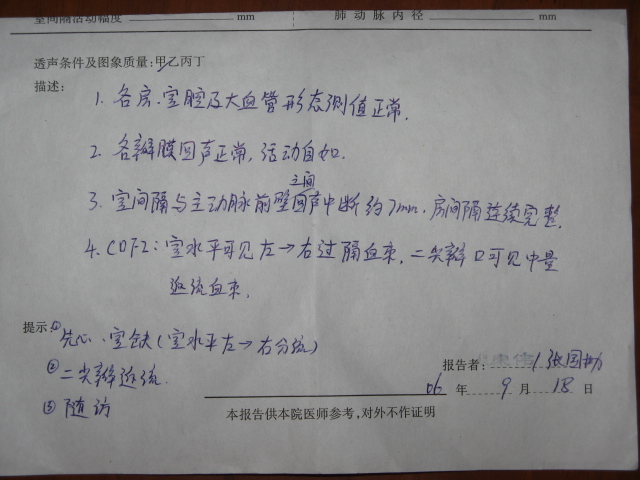 室间隔活动幅度 mm 肺动脉内径 mm
透声条件及图象质量:甲乙丙丁
描述:
1. 各房、室腔及大血管形态测值正常.
2. 各瓣膜回声正常,活动自如.
3. 室间隔与主动脉前壁之间回声中断约7mm,房间隔连续完整.
4. CDFI:室水平可见左→右过隔血束,二尖瓣口可见中量
返流血束.
提示:① 先心、室缺(室水平左→右分流)
② 二尖瓣返流.
③ 随访
报告者: 张国
06 年 9 月 18 日
本报告供本院医师参考,对外不作证明